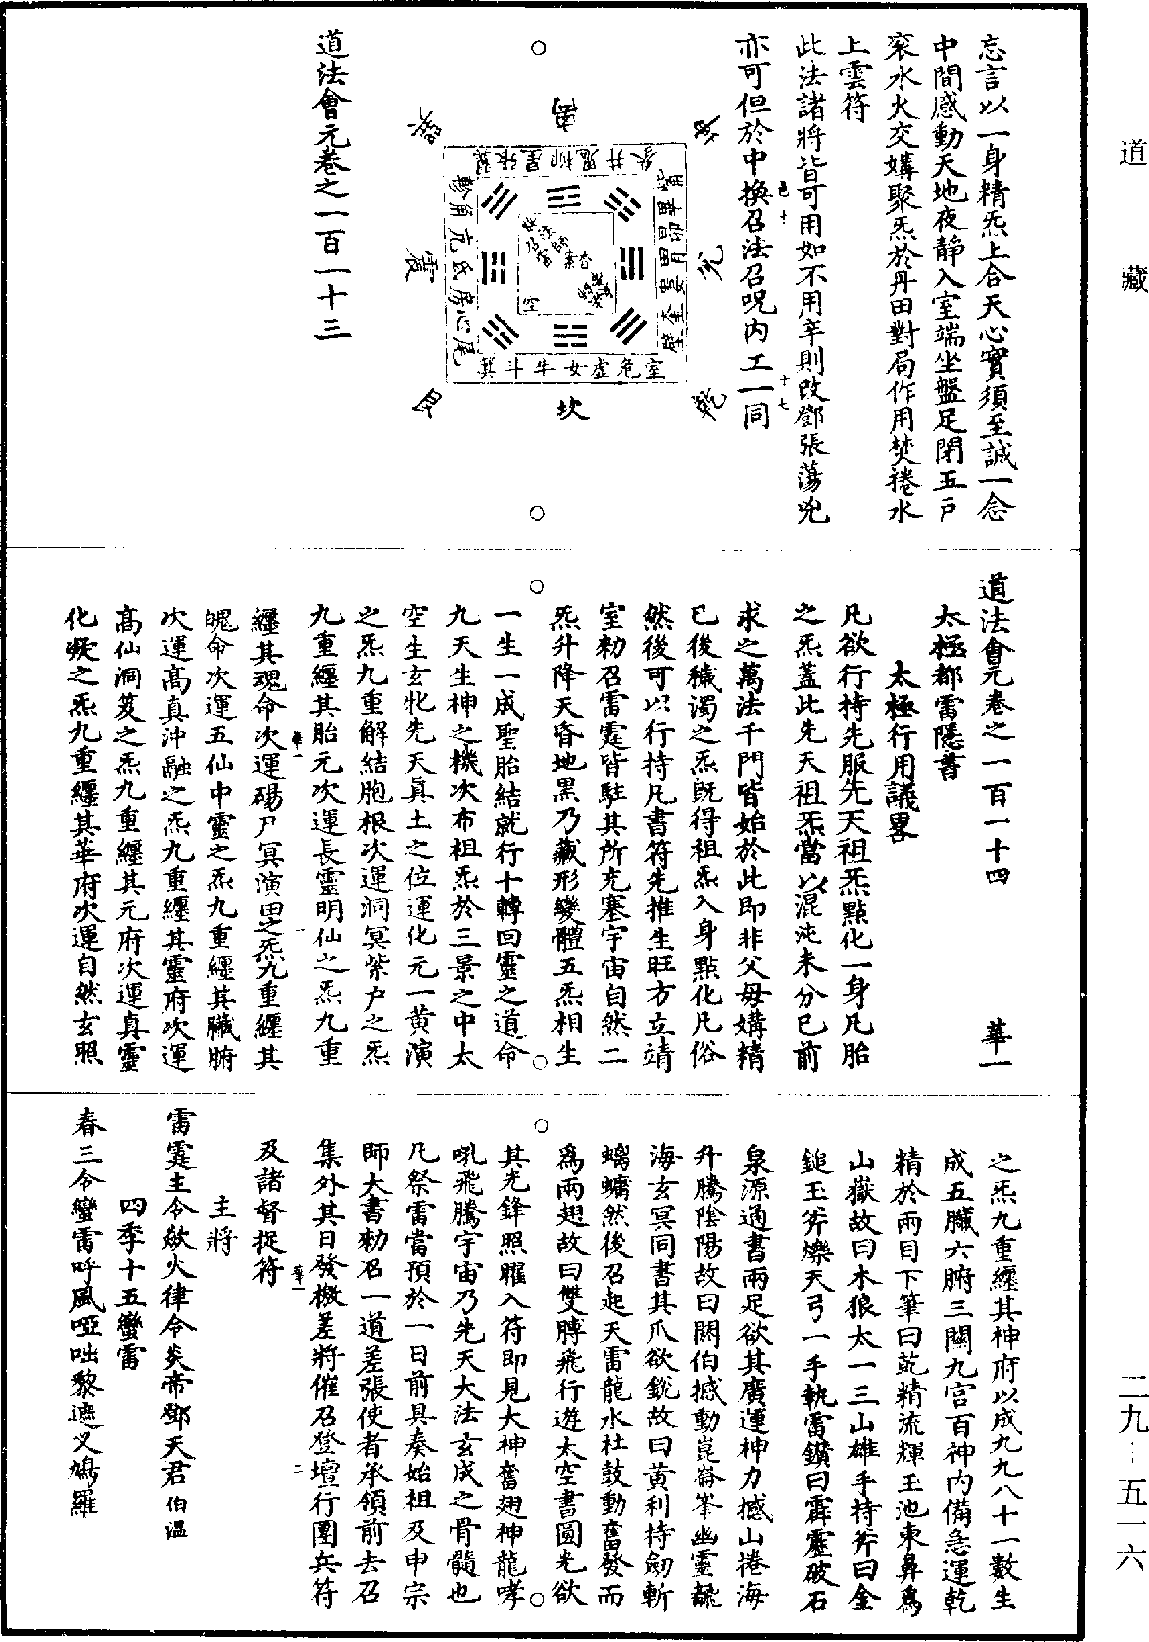 道藏
忘言以一身精炁上合天心實須至誠一念
中間感動天地夜靜入室端坐盤足閉五戶
滾水火交媾聚炁於丹田對局作用焚捲水
上雲符
此法諸將皆可用如不用辛則改鄧張蕩兇
亦可但於中換召法召呪內工一同
離
坤
兌
乾
坎
艮
震
巽
參井鬼柳星張翼
軫角亢氐房心尾
箕斗牛女虛危室
壁奎婁胃昴畢觜
道法會元卷之一百一十三
道法會元卷之一百一十四 華一
太極都雷隱書
太極行用議畧
凡欲行持先服先天祖炁點化一身凡胎
之炁蓋此先天祖炁當以混沌未分已前
求之萬法千門皆始於此即非父母媾精
已後穢濁之炁旣得祖炁入身點化凡俗
然後可以行持凡書符先推生旺方立靖
室勑召雷霆皆駐其所充塞宇宙自然二
炁升降天昏地黑乃藏形變體五炁相生
一生一成聖胎結就行十轉回靈之道命
九天生神之機次布祖炁於三景之中太
空生玄牝先天眞土之位運化元一黃演
之炁九重解結胞根次運洞冥紫戶之炁
九重纏其胎元次運長靈明仙之炁九重
纏其魂命次運碭尸冥演由之炁九重纏其
魄命次運五仙中靈之炁九重纏其臟腑
次運高真沖融之炁九重纏其靈府次運
高仙洞笈之炁九重纏其元府次運眞靈
化凝之炁九重纏其華府次運自然玄照
之炁九重纏其神府以成九九八十一數生
成五臟六腑三關九宮百神內備急運乾
精於兩目下筆曰乾精流輝玉池東鼻爲
山嶽故曰木狼太一三山雄手持斧曰金
鎚玉斧爍天弓一手執雷鑽曰霹靂破石
泉源通書兩足欲其廣運神力撼山捲海
升騰陰陽故曰關伯撼動崑崙峯幽靈
海玄冥同書其爪欲銳故曰黃利持劒斬
螭䗤然後召起天雷龍水社鼓動奮發而
爲兩翅故曰雙膊飛行遊太空書圓光欲
其光鋒照耀入符即見大神奮翅神龍哮
吼飛騰宇宙乃先天大法玄成之骨髓也
凡祭雷當預於一日前具奏始祖及申宗
師大書勑召一道差張使者承領前去召
集外其日發檄差將催召登壇行團兵符
及諸督捉符
主將
雷霆主令欻火律令炎帝鄧天君伯溫
四季十五蠻雷
春三令蠻雷呼風啞咄黎遮叉鳩羅
二九－五一六